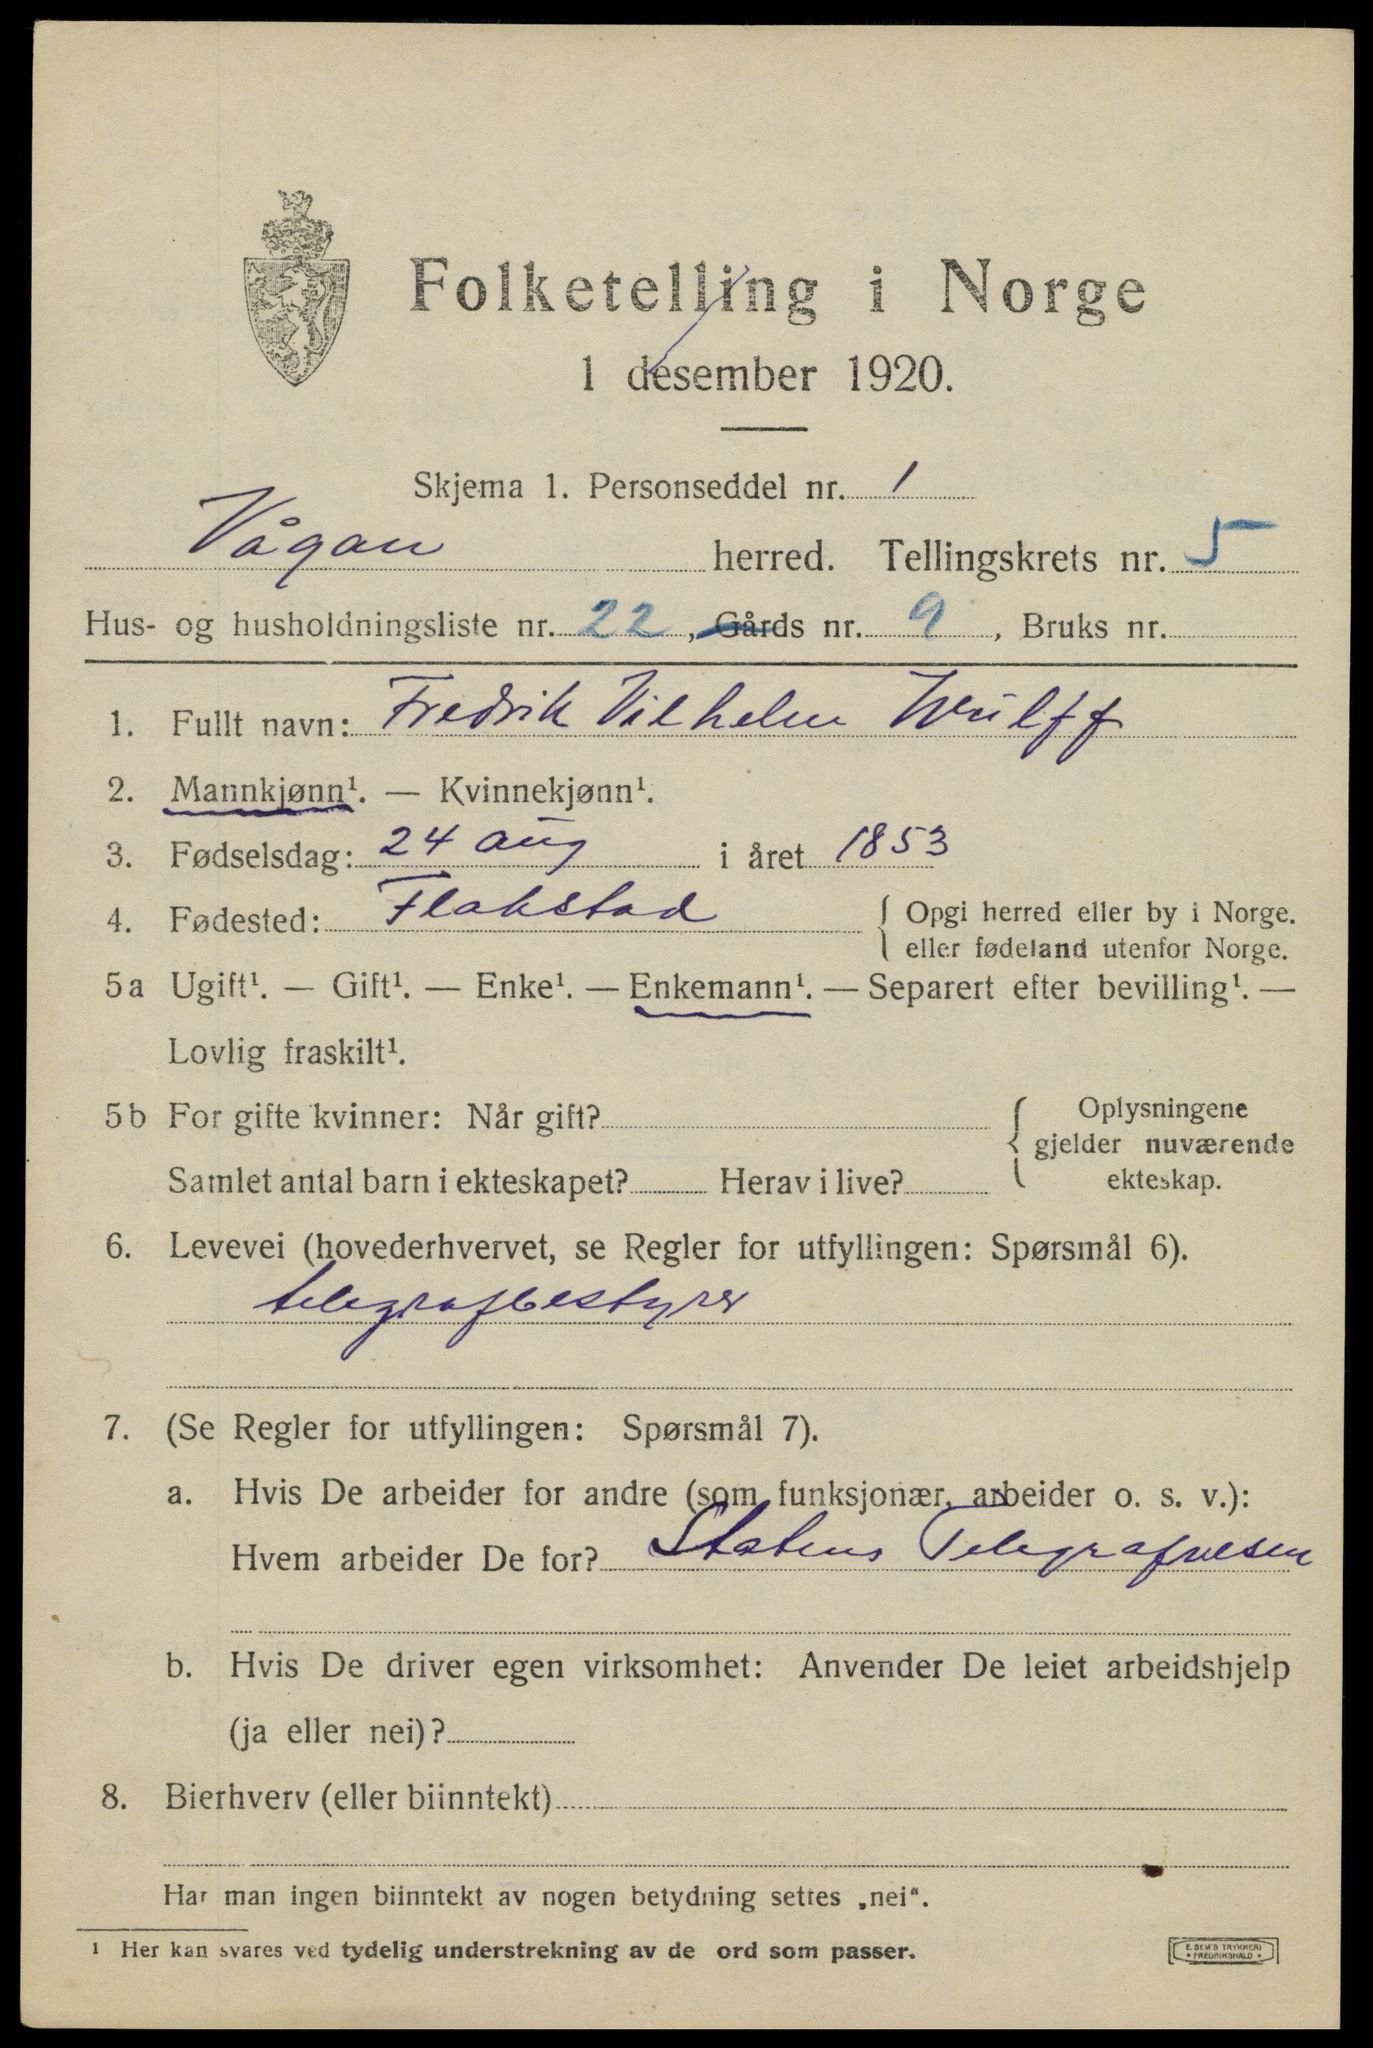 Folketelling i Norge
1 desember 1920.
Skjema 1. Personseddel nr. 1
Vågan herred. Tellingskrets nr. 5
Hus- og husholdningsliste nr. 22, Gårds nr. 9, Bruks nr.
1. Fullt navn: Fredrik Vilhelm Wülff
2. Mannkjønn¹. — Kvinnekjønn¹.
3. Fødselsdag: 24 aug i året 1853
4. Fødested: Flakstad { Opgi herred eller by i Norge.
eller fødeland utenfor Norge.
5a Ugift¹. — Gift¹. — Enke¹. — Enkemann¹. — Separert efter bevilling¹. —
Lovlig fraskilt¹.
5b For gifte kvinner: Når gift? { Oplysningene
gjelder nuværende
Samlet antal barn i ekteskapet? Herav i live? ekteskap.
6. Levevei (hovederhvervet, se Regler for utfyllingen: Spørsmål 6).
telegrafbestyrer
7. (Se Regler for utfyllingen: Spørsmål 7).
a. Hvis De arbeider for andre (som funksjonær, arbeider o. s. v.):
Hvem arbeider De for? Statens Telegrafvesen
b. Hvis De driver egen virksomhet: Anvender De leiet arbeidshjelp
(ja eller nei)?
8. Bierhverv (eller biinntekt)
Har man ingen biinntekt av nogen betydning settes „nei“.
¹ Her kan svares ved tydelig understrekning av de ord som passer.
E. SEM'S TRYKKERI
• FREDRIKSHALD •